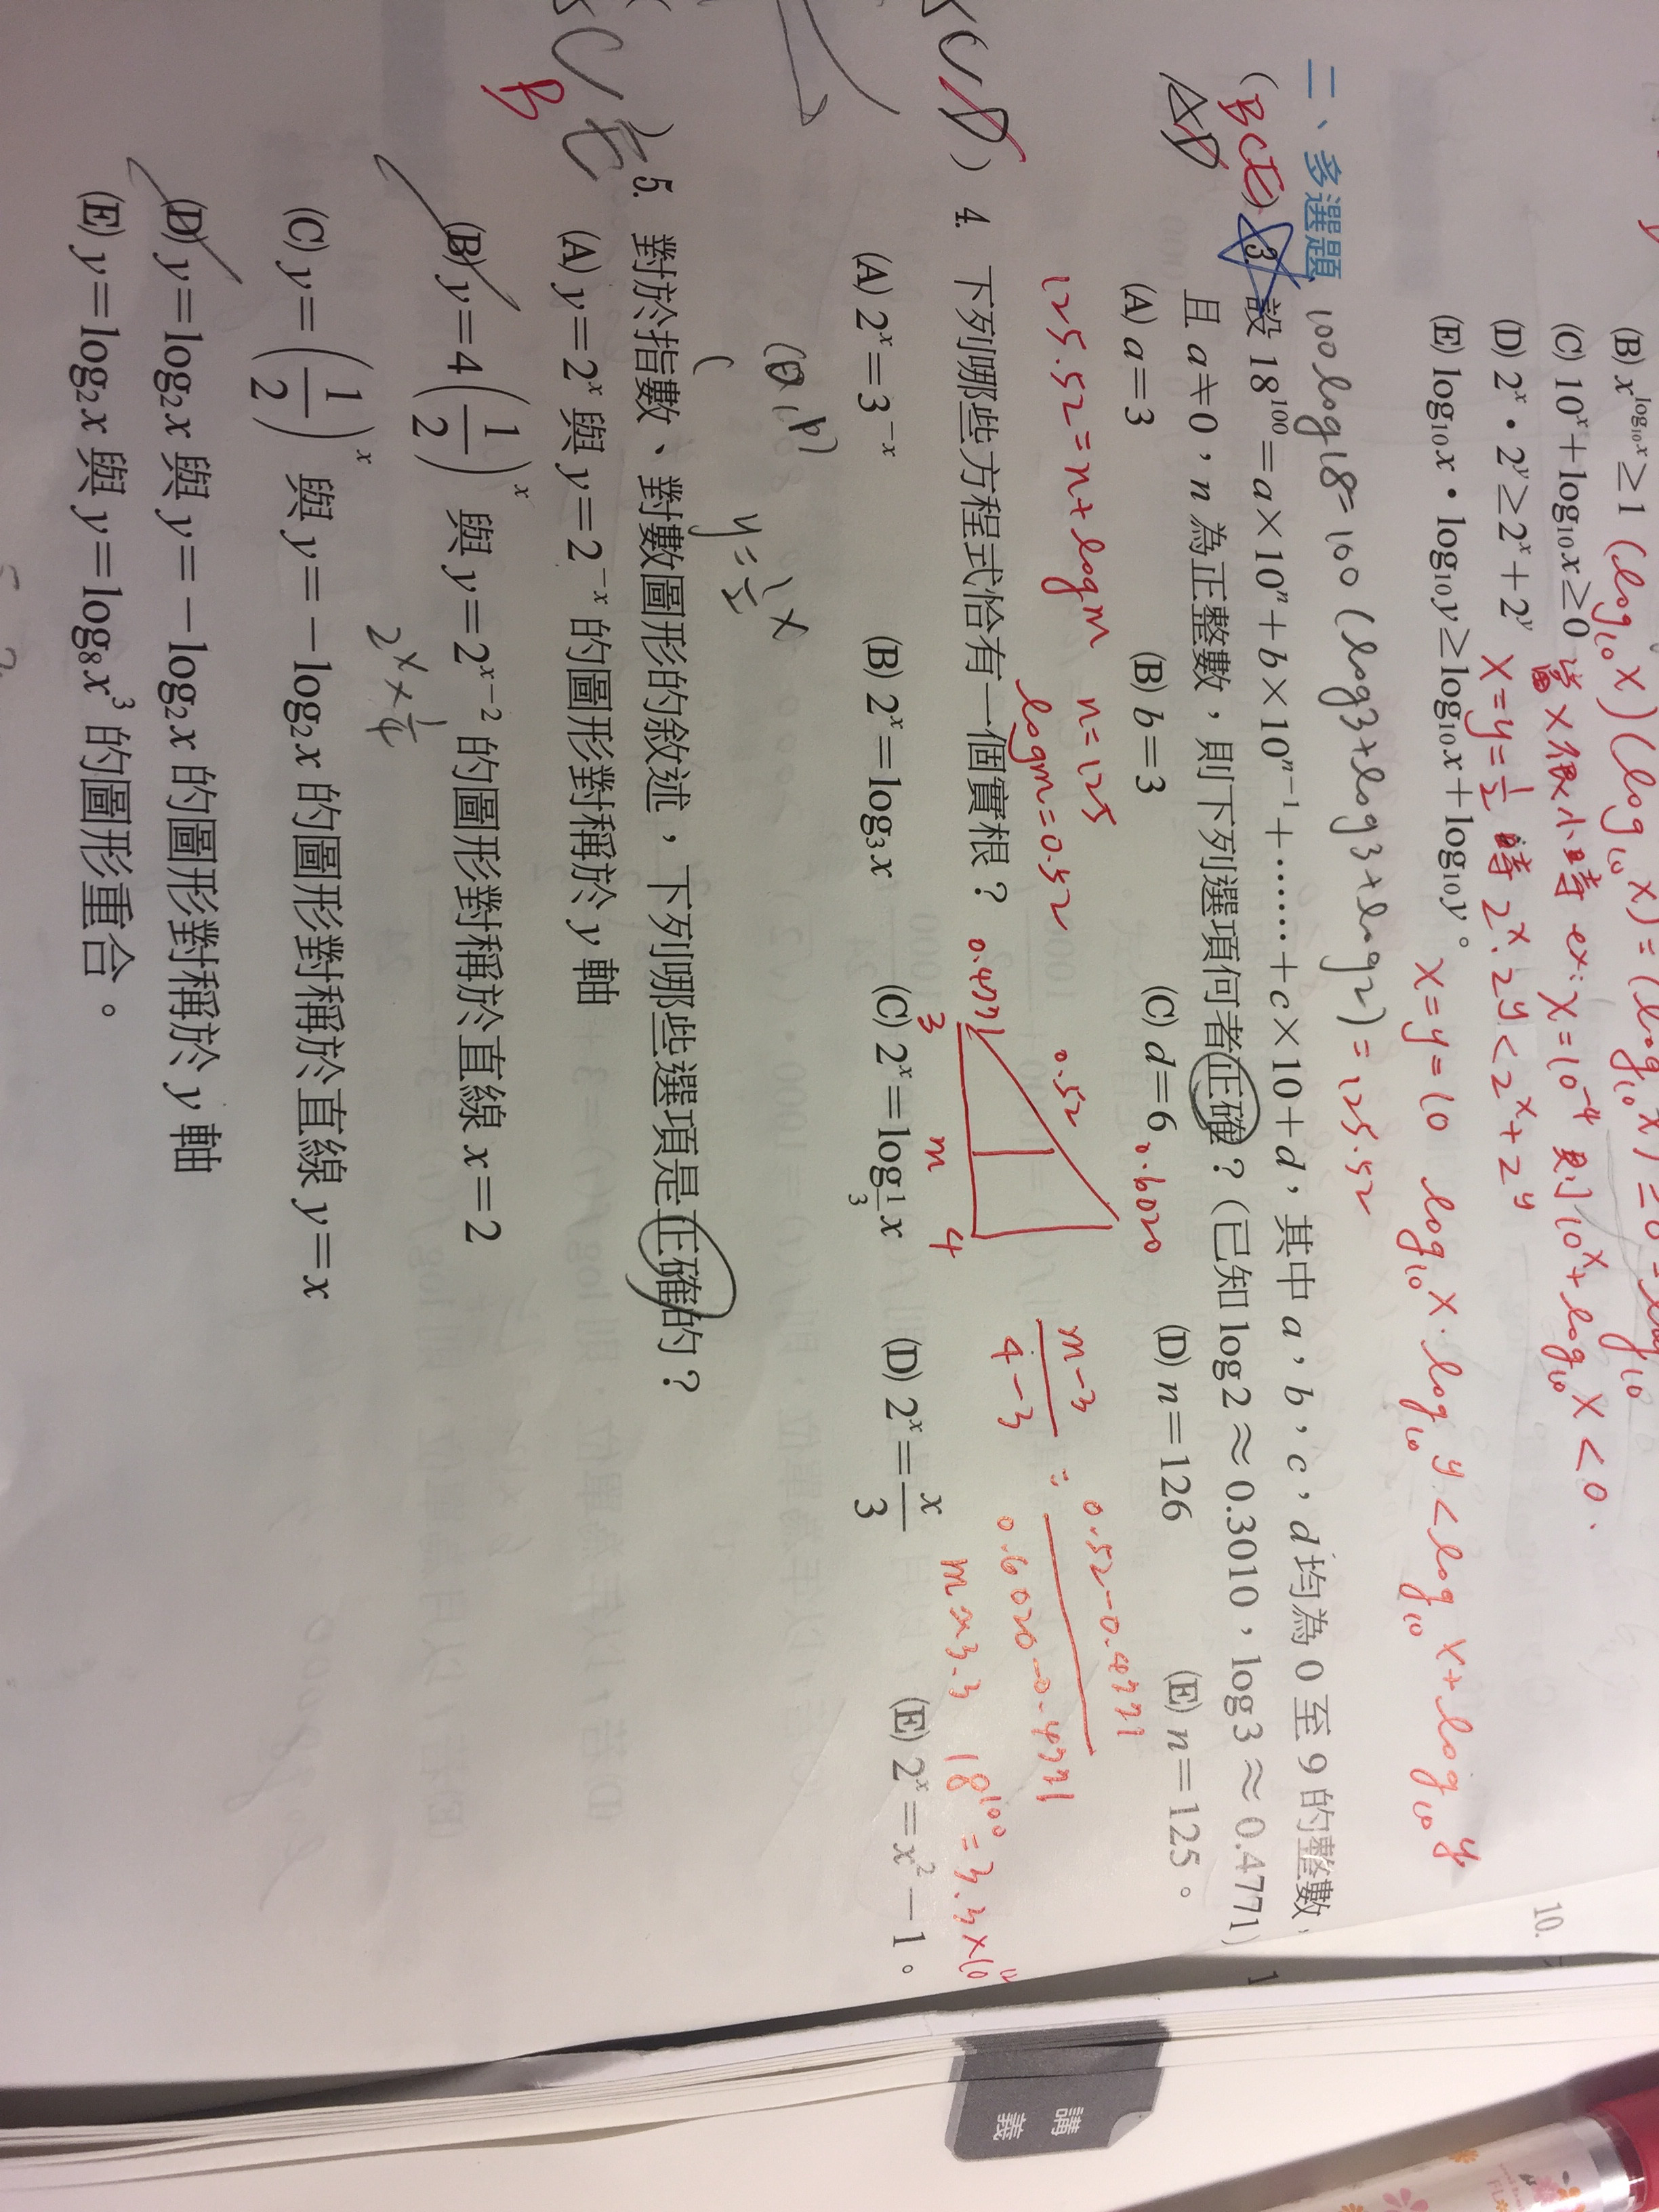 (B) x^{log₁₀x} ≥ 1 (log₁₀ x)(log₁₀ x) = (log₁₀ x)
(C) 10^x + log₁₀x ≥ 0 當 x 很小時 ex: x = 10^{-4} 則 10^x + log₁₀ x < 0.
(D) 2^x · 2^y ≥ 2^x + 2^y x = y = 1/2 時 2^x · 2^y < 2^x + 2^y
(E) log₁₀x · log₁₀y ≥ log₁₀x + log₁₀y。 x = y = 10 log₁₀ x · log₁₀ y < log₁₀ x + log₁₀ y
10.
二、多選題 100 log 18 = 100 (log3 + log3 + log2) = 125.52
(BCE) 3. 設 18^{100} = a×10^n + b×10^{n-1} + …… + c×10 + d,其中 a,b,c,d 均為 0 至 9 的整數,
AD 且 a≠0,n 為正整數,則下列選項何者正確?(已知 log2≈0.3010,log3≈0.4771)
(A) a=3 (B) b=3 (C) d=6 (D) n=126 (E) n=125。
125.52 = n + log m n = 125
log m = 0.52
0.4771 0.52 0.6020
3 m 4
m-3 / 4-3 = 0.52-0.4771 / 0.6020-0.4771
m ≈ 3.3 18^{100} = 3.3×10
) 4. 下列哪些方程式恰有一個實根?
(A) 2^x = 3^{-x} (B) 2^x = log₃x (C) 2^x = log_{1/3} x (D) 2^x = x/3 (E) 2^x = x² - 1。
y = 1/2 x
) 5. 對於指數、對數圖形的敘述,下列哪些選項是正確的?
B
(A) y = 2^x 與 y = 2^{-x} 的圖形對稱於 y 軸
(B) y = 4(1/2)^x 與 y = 2^{x-2} 的圖形對稱於直線 x = 2
2^x × 1/4
(C) y = (1/2)^x 與 y = -log₂x 的圖形對稱於直線 y = x
(D) y = log₂x 與 y = -log₂x 的圖形對稱於 y 軸
(E) y = log₂x 與 y = log₈x³ 的圖形重合。
講義